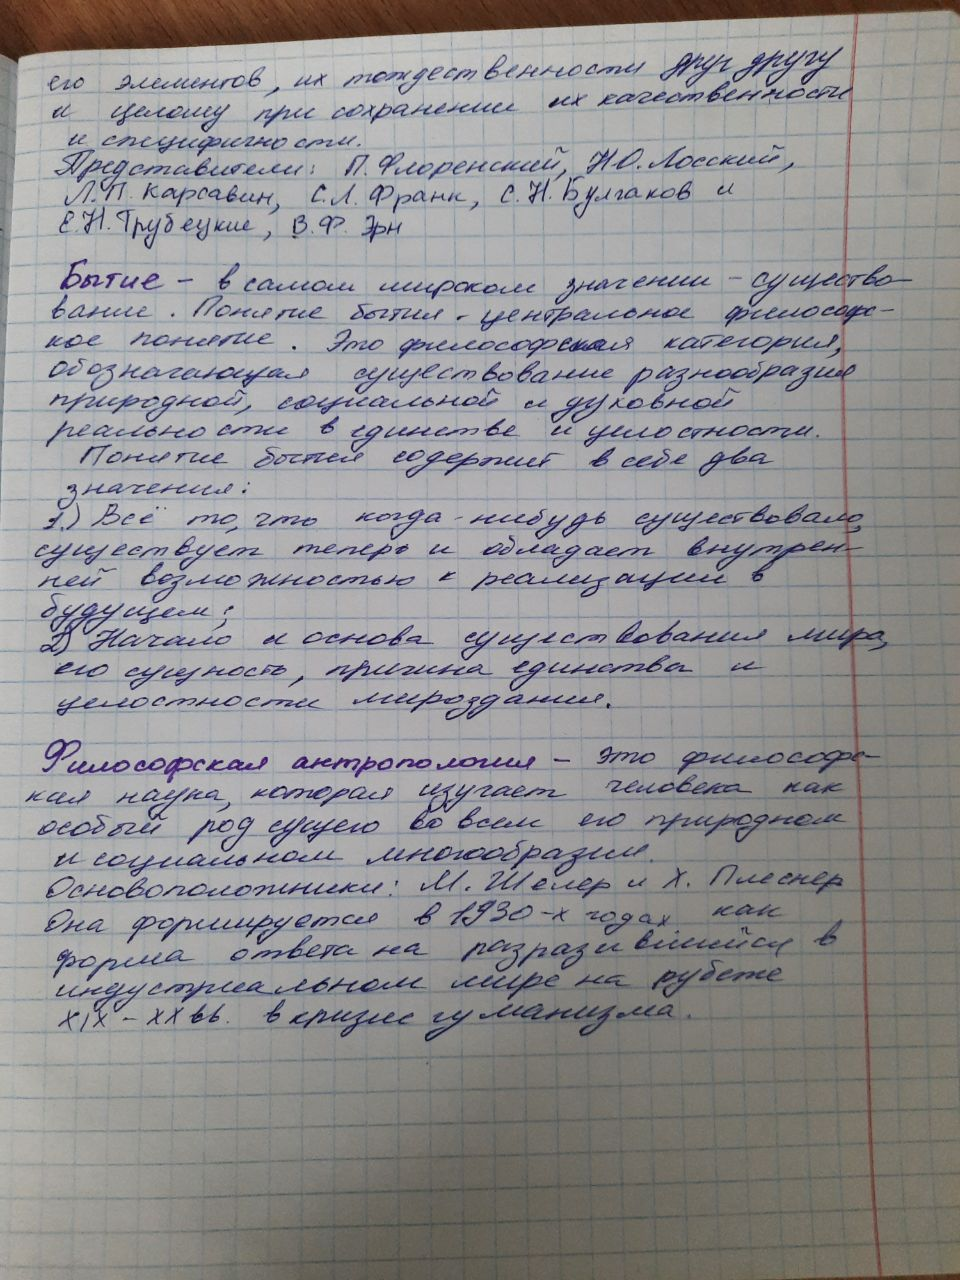 его элементов, их тождественности друг другу
и целому при сохранении их качественности
и специфичности.
Представители: П. Флоренский, Н.О. Лосский,
Л.П. Карсавин, С.Л. Франк, С.Н. Булгаков и
Е.Н. Трубецкие, В.Ф. Эрн
Бытие – в самом широком значении – существо-
вание. Понятие бытия - центральное философс-
кое понятие. Это философская категория,
обозначающая существование разнообразия
природной, социальной и духовной
реальности в единстве и целостности.
Понятие бытия содержит в себе два
значения:
1.) Всё то, что когда-нибудь существовало,
существует теперь и обладает внутрен-
ней возможностью к реализации в
будущем;
2) Начало и основа существования мира,
его сущность, причина единства и
целостности мироздания.
Философская антропология – это философс-
кая наука, которая изучает человека как
особый род сущего во всем его природном
и социальном многообразии.
Основоположники: М. Шелер и Х. Плеснер
Она формируется в 1930-х годах как
форма ответа на разразившийся в
индустриальном мире на рубеже
XIX – XX вв. в кризис гуманизма.